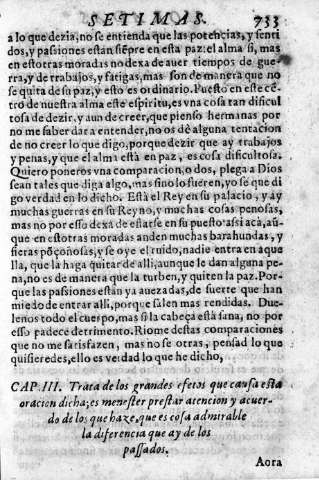 SETIMAS. 733
a lo que dezia, no se entienda que las potencias, y senti
dos, y passiones estàn siẽpre en esta paz: el alma si, mas
en estotras moradas no dexa de auer tiempos de gue-
rra, y de trabajos, y fatigas, mas son de manera que no
se quita de su paz, y esto es ordinario. Puesto en este cẽ
tro de nuestra alma este espiritu, es vna cosa tan dificul
tosa de dezir, y aun de creer, que pienso hermanas por
no me saber dar a entender, no os dè alguna tentacion
de no creer lo que digo, porque dezir que ay trabajos
y penas, y que el alma està en paz, es cosa dificultosa.
Quiero poneros vna comparacion, o dos, plega a Dios
sean tales que diga algo, mas sino lo fueren, yo se que di
go verdad en lo dicho. Està el Rey en su palacio, y ay
muchas guerras en su Reyno, y muchas cosas penosas,
mas no por esso dexa de estarse en su puesto: assi acà, aũ-
que en estotras moradas anden muchas barahundas, y
fieras põçoñosas, y se oye el ruido, nadie entra en aque
lla, que la haga quitar de alli, aunque le dan alguna pe-
na, no es de manera que la turben, y quiten la paz. Por-
que las passiones estàn ya auezadas, de suerte que han
miedo de entrar alli, porque salen mas rendidas. Due-
lenos todo el cuerpo, mas si la cabeça està sana, no por
esso padece detrimento. Riome destas comparaciones
que no me satisfazen, mas no se otras, pensad lo que
quisieredes, ello es verdad lo que he dicho,
CAP. III. Trata de los grandes efetos que causa esta
oracion dicha; es menester prestar atencion y acuer-
do de los que haze, que es cosa admirable
la diferencia que ay de los
passados.
Aora